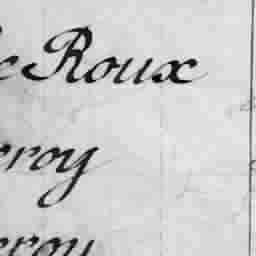 c Roux
eroy
eroy